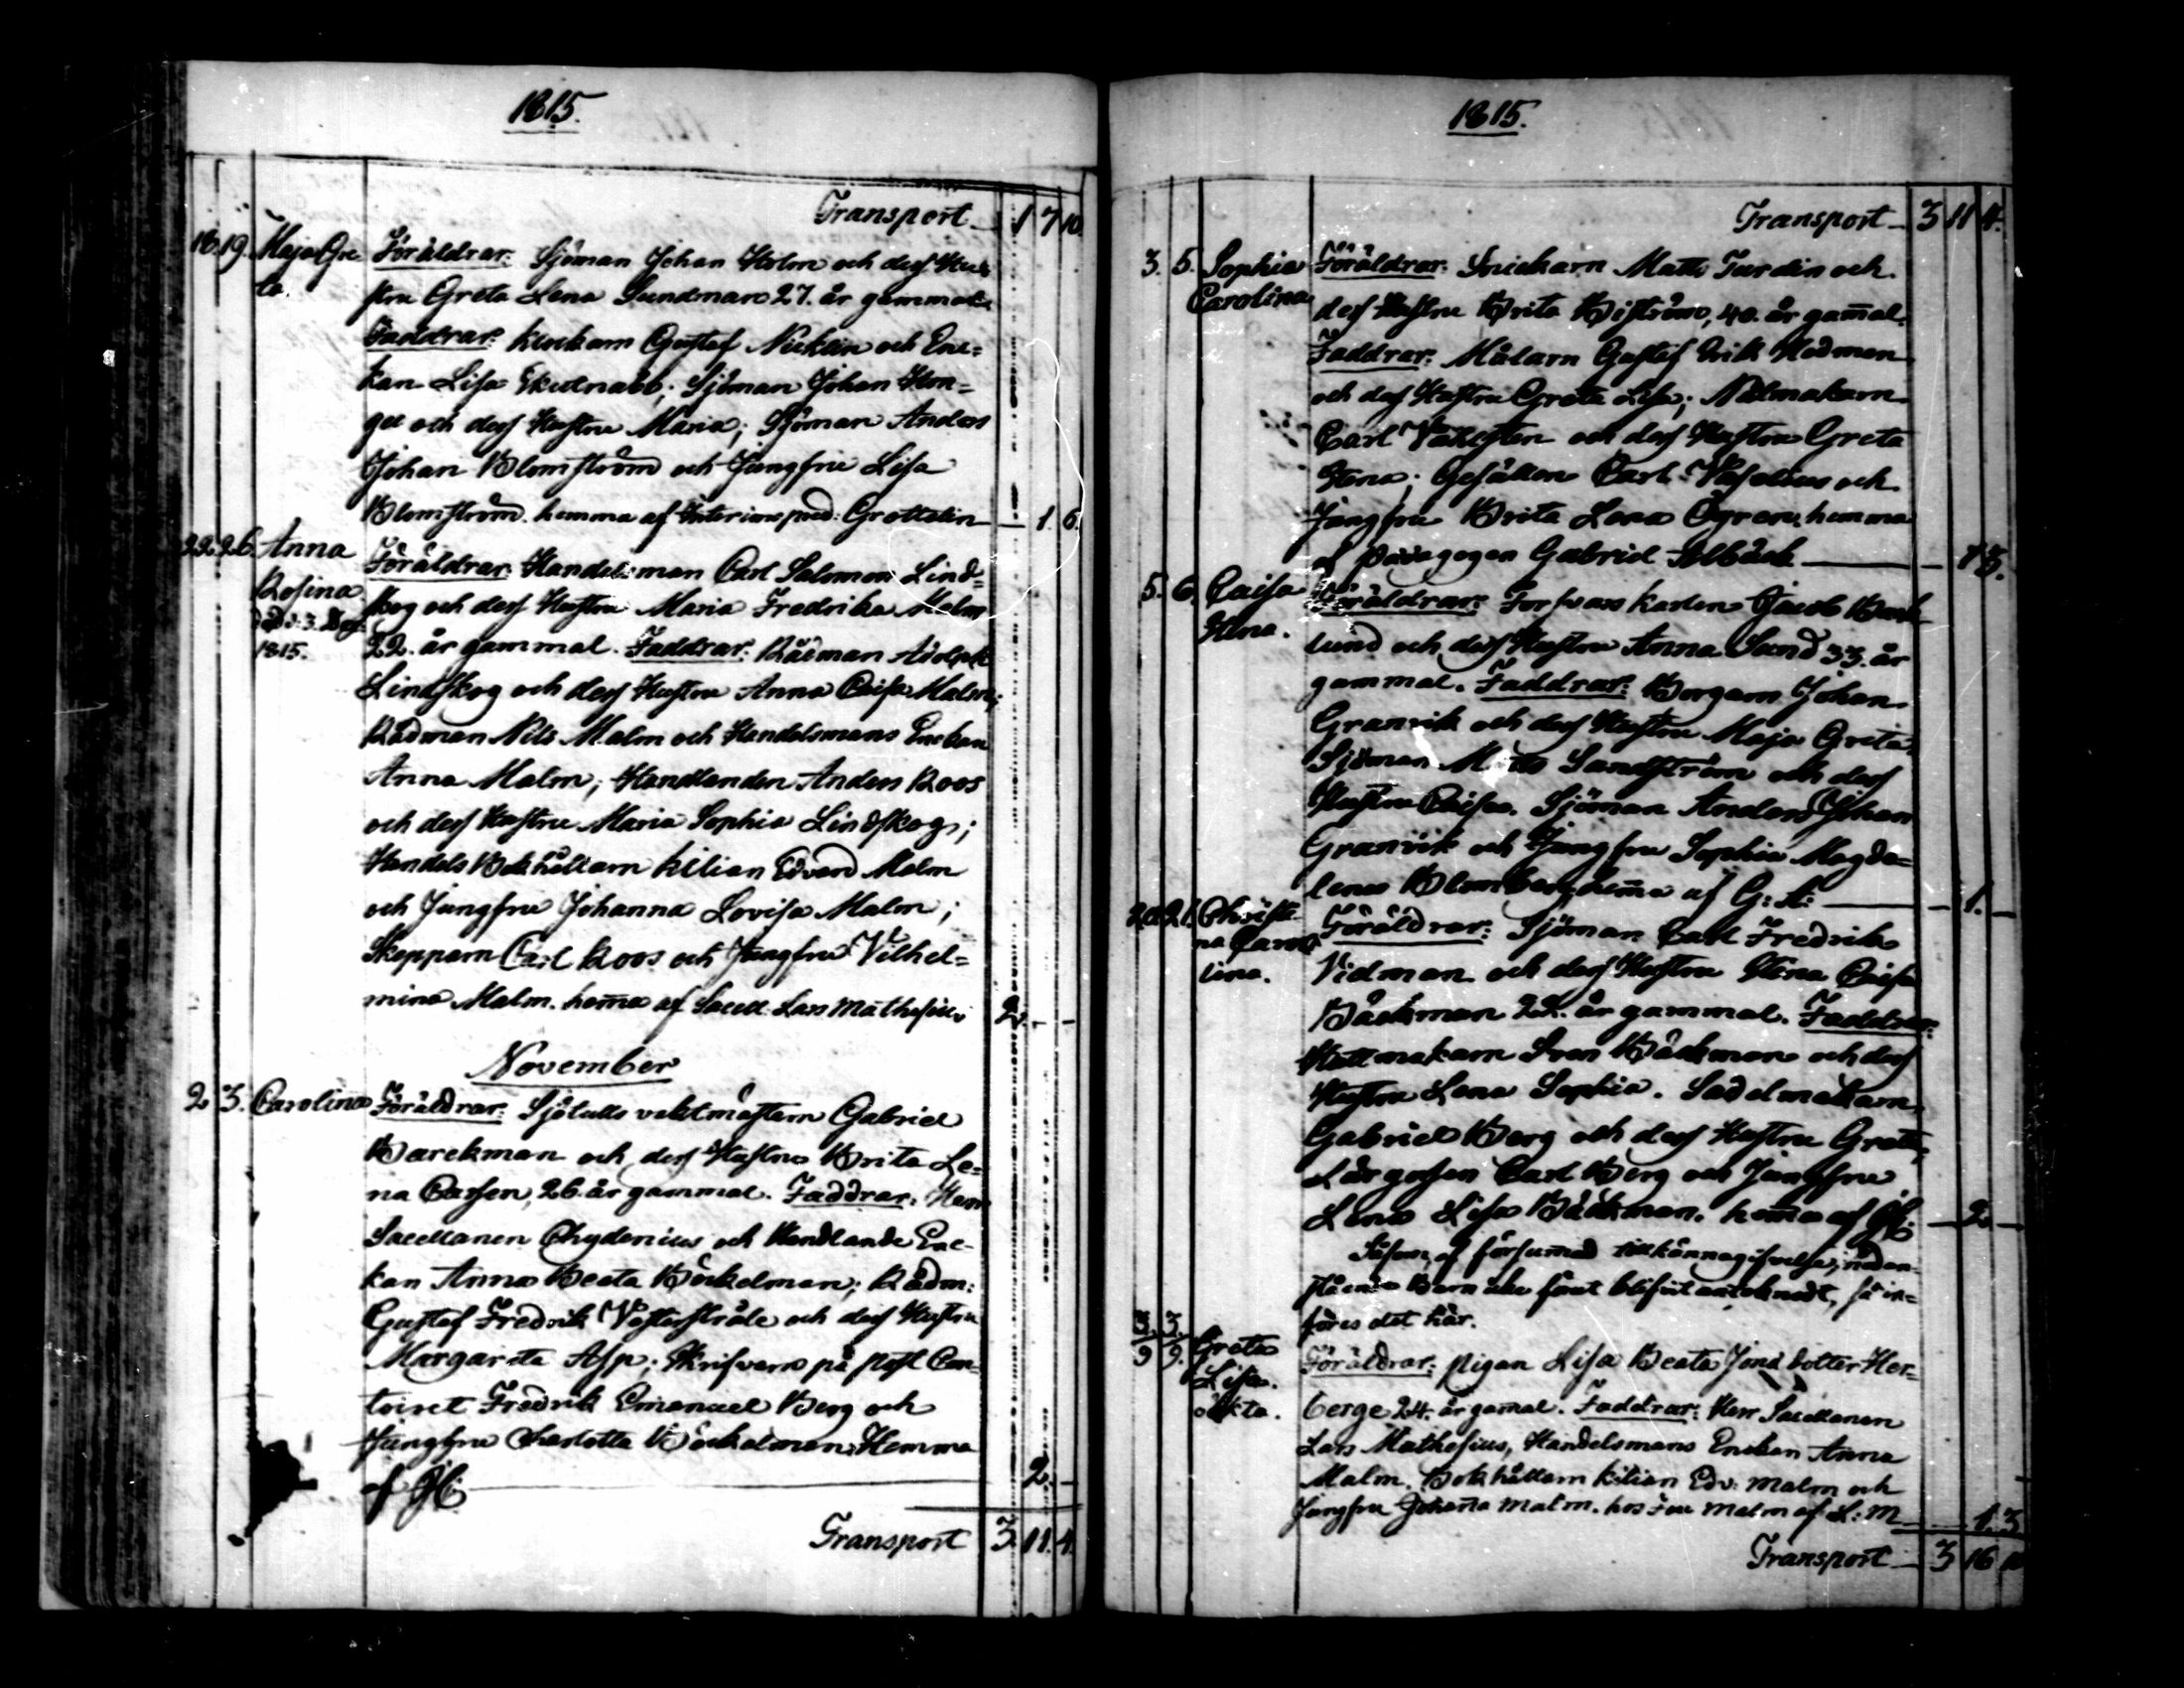 1815.
Transport 1 7 10.
18. 19. Maja Gre Föräldrar: Sjöman Johan Holm och dess Hu-
ta. stru Greta Lena Sundman 27. år gammal
Faddrar: Gustaf och Enc=
kan Lisa Skutnabb; Sjöman Johan Hon=
ge och dess Hustru Maria; Sjöman Anders
Johan Blomström och Jungfru Lisa
Blomström. hemma af Interims pred: 1. 6.
22. 26. Anna Föräldrar: Handelsman Carl Salomon Lind=
Rosina skog och dess Hustru Maria Fredrika Malm
död d: 3. Dec: 22. år gammal. Faddrar: Rådman Adolph
1815. Lindskog och dess Hustru Anna Caisa Malm;
Rådman Nils Malm och Handelsmans Enckan
Anna Malm; Handlanden Anders Roos
och dess Hustru Maria Sophia Lindskog;
Handels Bokhållarn Kilian Edvard Malm
och Jungfru Johanna Lovisa Malm;
Skepparn Carl Roos och Jungfru Vilhel=
mina Malm. hem̄a af Sacell. Lars Mathesius 2. - -
November
2 3. Carolina Föräldrar: Sjötulls vaktmästarn Gabriel
Barckman och dess Hustru Brita Le=
na 26. år gammal. Faddrar: Herr
Sacellanen Chydenius och Handlande Enc-
kan Anna Beata Böckelman; Rådm:
Gustaf Fredrik Vesterstråle och dess Hustru
Margareta Asp; Skrifvarn på Post Con-
toiret Fredrik Emanuel Berg och
Jungfru Charlotta Böckelman. Hemma
af 2. -
Transport 3. 11. 4.
1815.
Transport 3 11 4.
3. 5. Sophia Föräldrar: Snickarn Matts och
Carolina dess Hustru Brita Biström, 40. år gam̄al.
Faddrar: Målarn Gustaf Erik Hedman
och dess Hustru Greta Lisa; Nålmakarn
Carl och dess Hustru Greta
Stena; Gesällen Carl och
Jungfru Brita Lena Ögren. hemma
af Pædagogen Gabriel Ahlbäck 1 3.
5. 6. Caisa Föräldrar: Forsvars karlen Jacob Back-
Stena. lund och dess Hustru Anna Sund 33. år
gammal. Faddrar: Borgarn Johan
Granvik och dess Hustru Maja Greta,
Sjöman Matts Sandström och dess
Hustru Caisa. Sjöman Anders Johan
Granvik och Jungfru Sophia Magda=
lena Blomberg. hem̄a af G: A: 1. -
20. 21. Christi Föräldrar: Sjöman Carl Fredrik
na Caro Vidman och dess Hustru Stena Caisa
lina. Bäckman 22. år gammal. Faddrar:
Hattmakarn Sven Bäckman och dess
Hustru Lena Sophia. Sadelmakarn
Gabriel Berg och dess Hustru Greta,
Lärgossen Carl Berg och Jungfru
Lena Lisa Bäckman. hem̄a af 2. -
Såsom af försum̄ad tillkännagifvelse, nedan-
stående Barn icke förut blifvit antecknadt, så in=
föres det här.
3. 3. Greta
9 9. Lisa. Föräldrar: Pigan Lisa Beata Jonä dotter Her=
oäkta. berge 24. år gam̄al. Faddrar: Herr Sacellanen
Lars Mathesius, Handelsmans Enckan Anna
Malm. Bokhållarn Kilian Edv: Malm och
Jungfru Johan̄a Malm. hos Fru Malm af L: M 1. 3
Transport 3 16 10